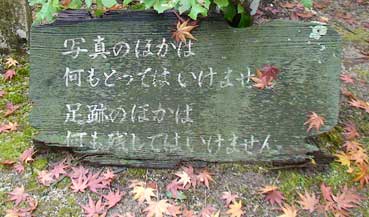 写真のほかは
何もとってはいけませ
足跡のほかは
何も残してはいけません